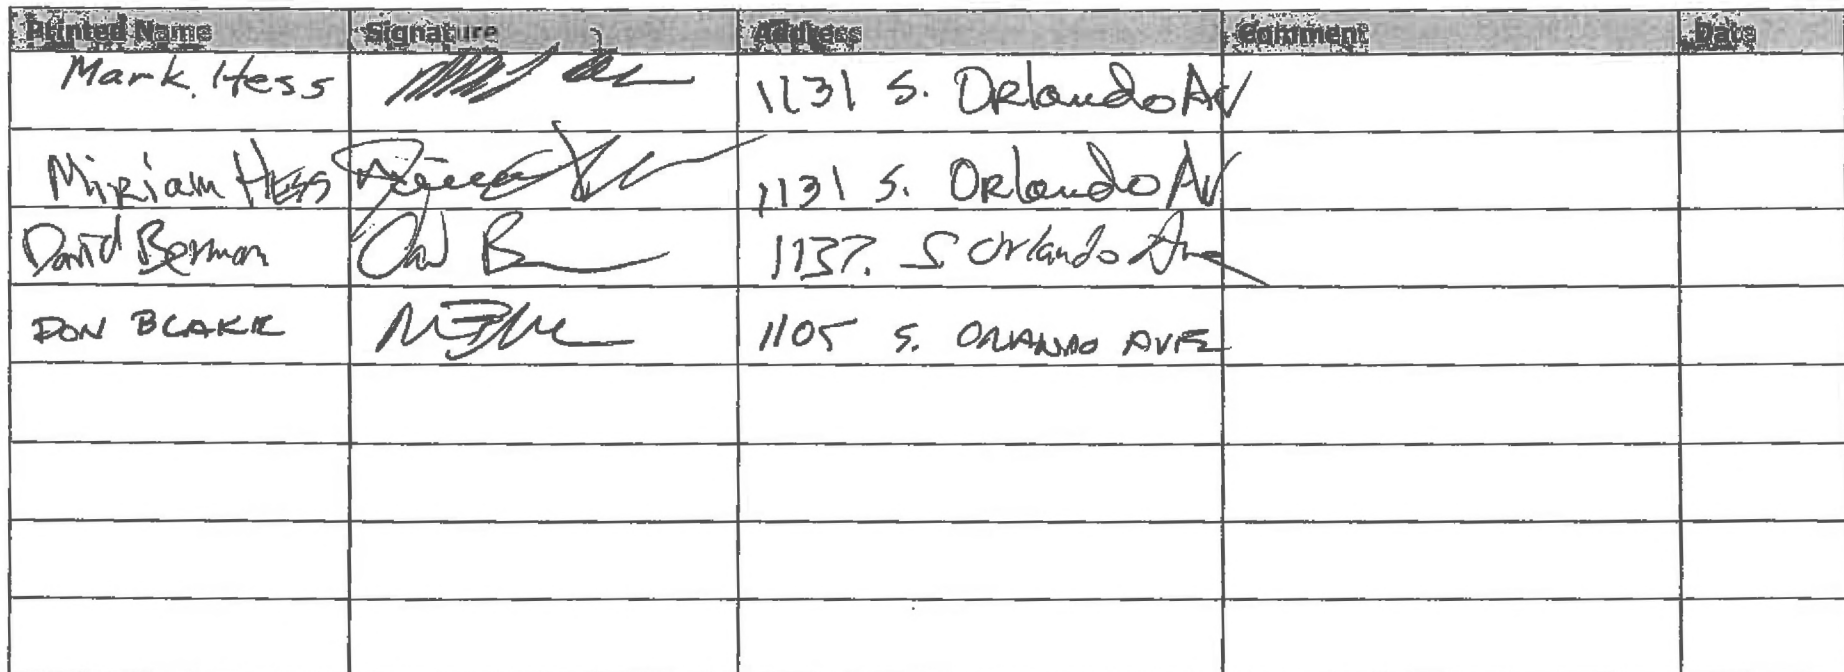 Printed Name Signature Address Comment Date
Mark Hess 1131 S. Orlando Av
Miriam Hess 1131 S. Orlando Av
David Berman 1137. S Orlando Ave
DON BLAKE 1105 S. ORLANDO AVE